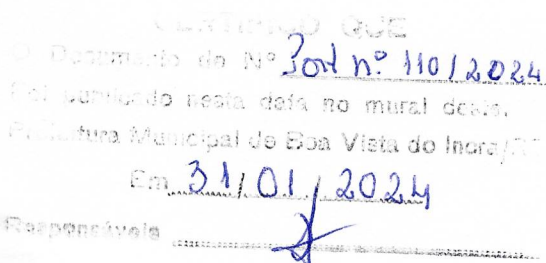 CERTIFICO QUE
O Documento de Nº Port nº 110/2024
Foi publicado nesta data no mural desta.
Prefeitura Municipal de Boa Vista do Incra/RS
Em 31/01/2024
Responsáveis